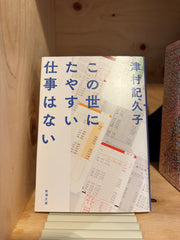 津村記久子
この世に
たやすい
仕事はない
新潮文庫